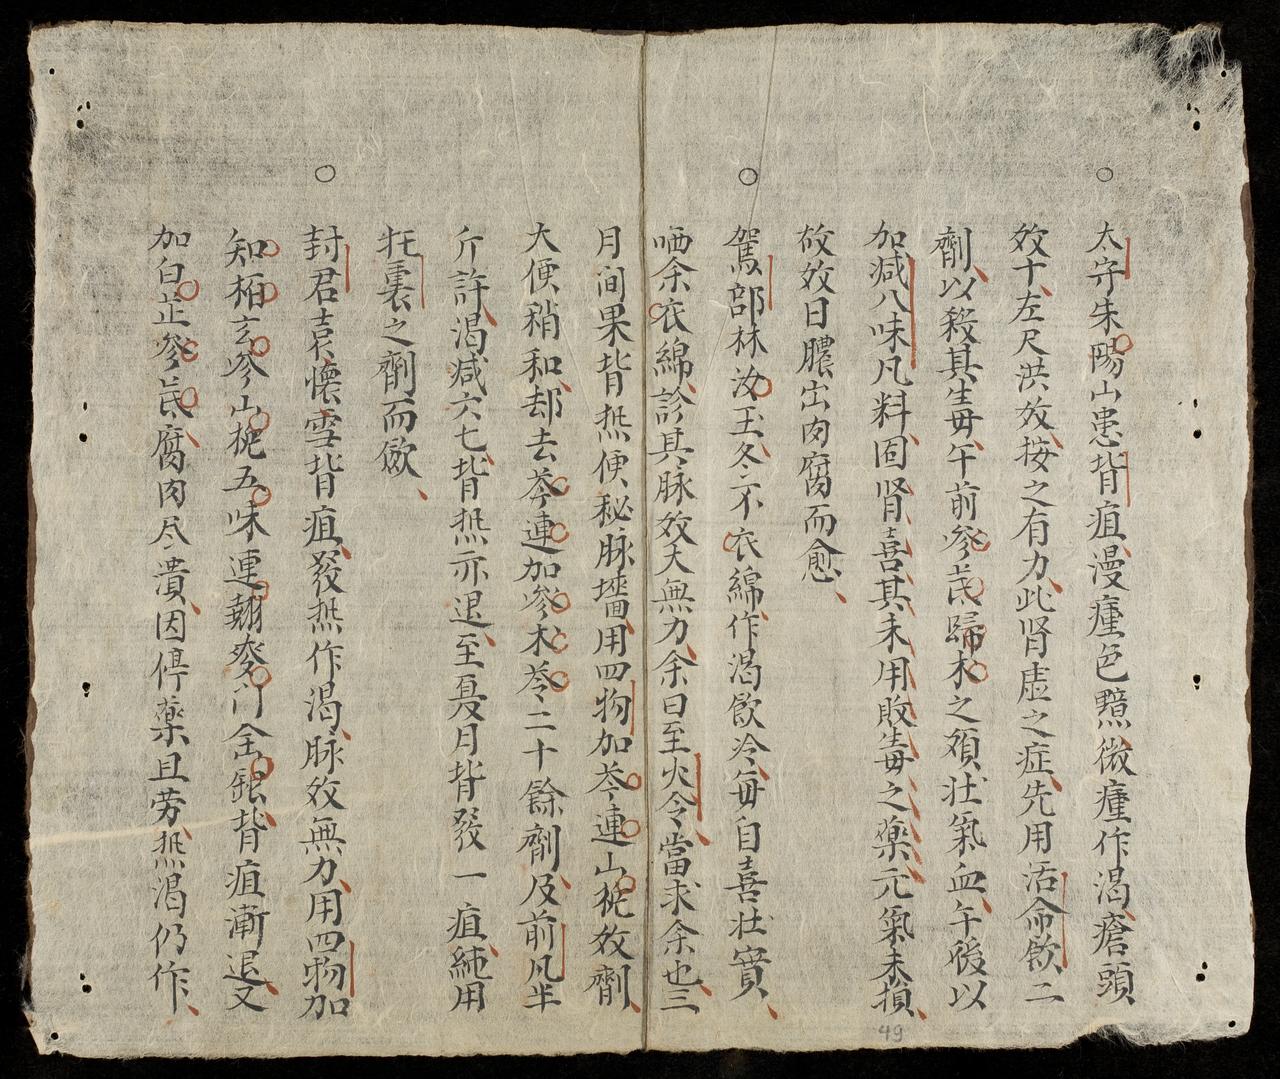 ○太守朱陽山患背疽漫瘇色黯微瘇作渴瘡頭
效十左尺洪效按之有力此肾虚之症先用活命飲二
劑以殺其毒午前參芪歸术之類壯氣血午後以
加减八味凡料固肾喜其未用敗毒之藥元氣未損
故效日膿出肉腐而愈
○駕部林汝玉冬不衣綿作渴飲冷每自喜壮實
哂余衣綿診其脉效大無力余曰至火令當求余也三
月间果背热便秘脉墻用四物加芩連山栀效劑
大便稍和却去芩連加參术苓二十餘劑及前凡半
斤許渴减六七背热亦退至夏月背發一疽純用
托裏之劑而歛
○封君袁懐雪背疽發热作渴脉效無力用四物加
知栢玄參山栀五味連翹麥门金銀背疽漸退又
加白芷參芪腐肉尽潰因停藥且劳热渴仍作
49